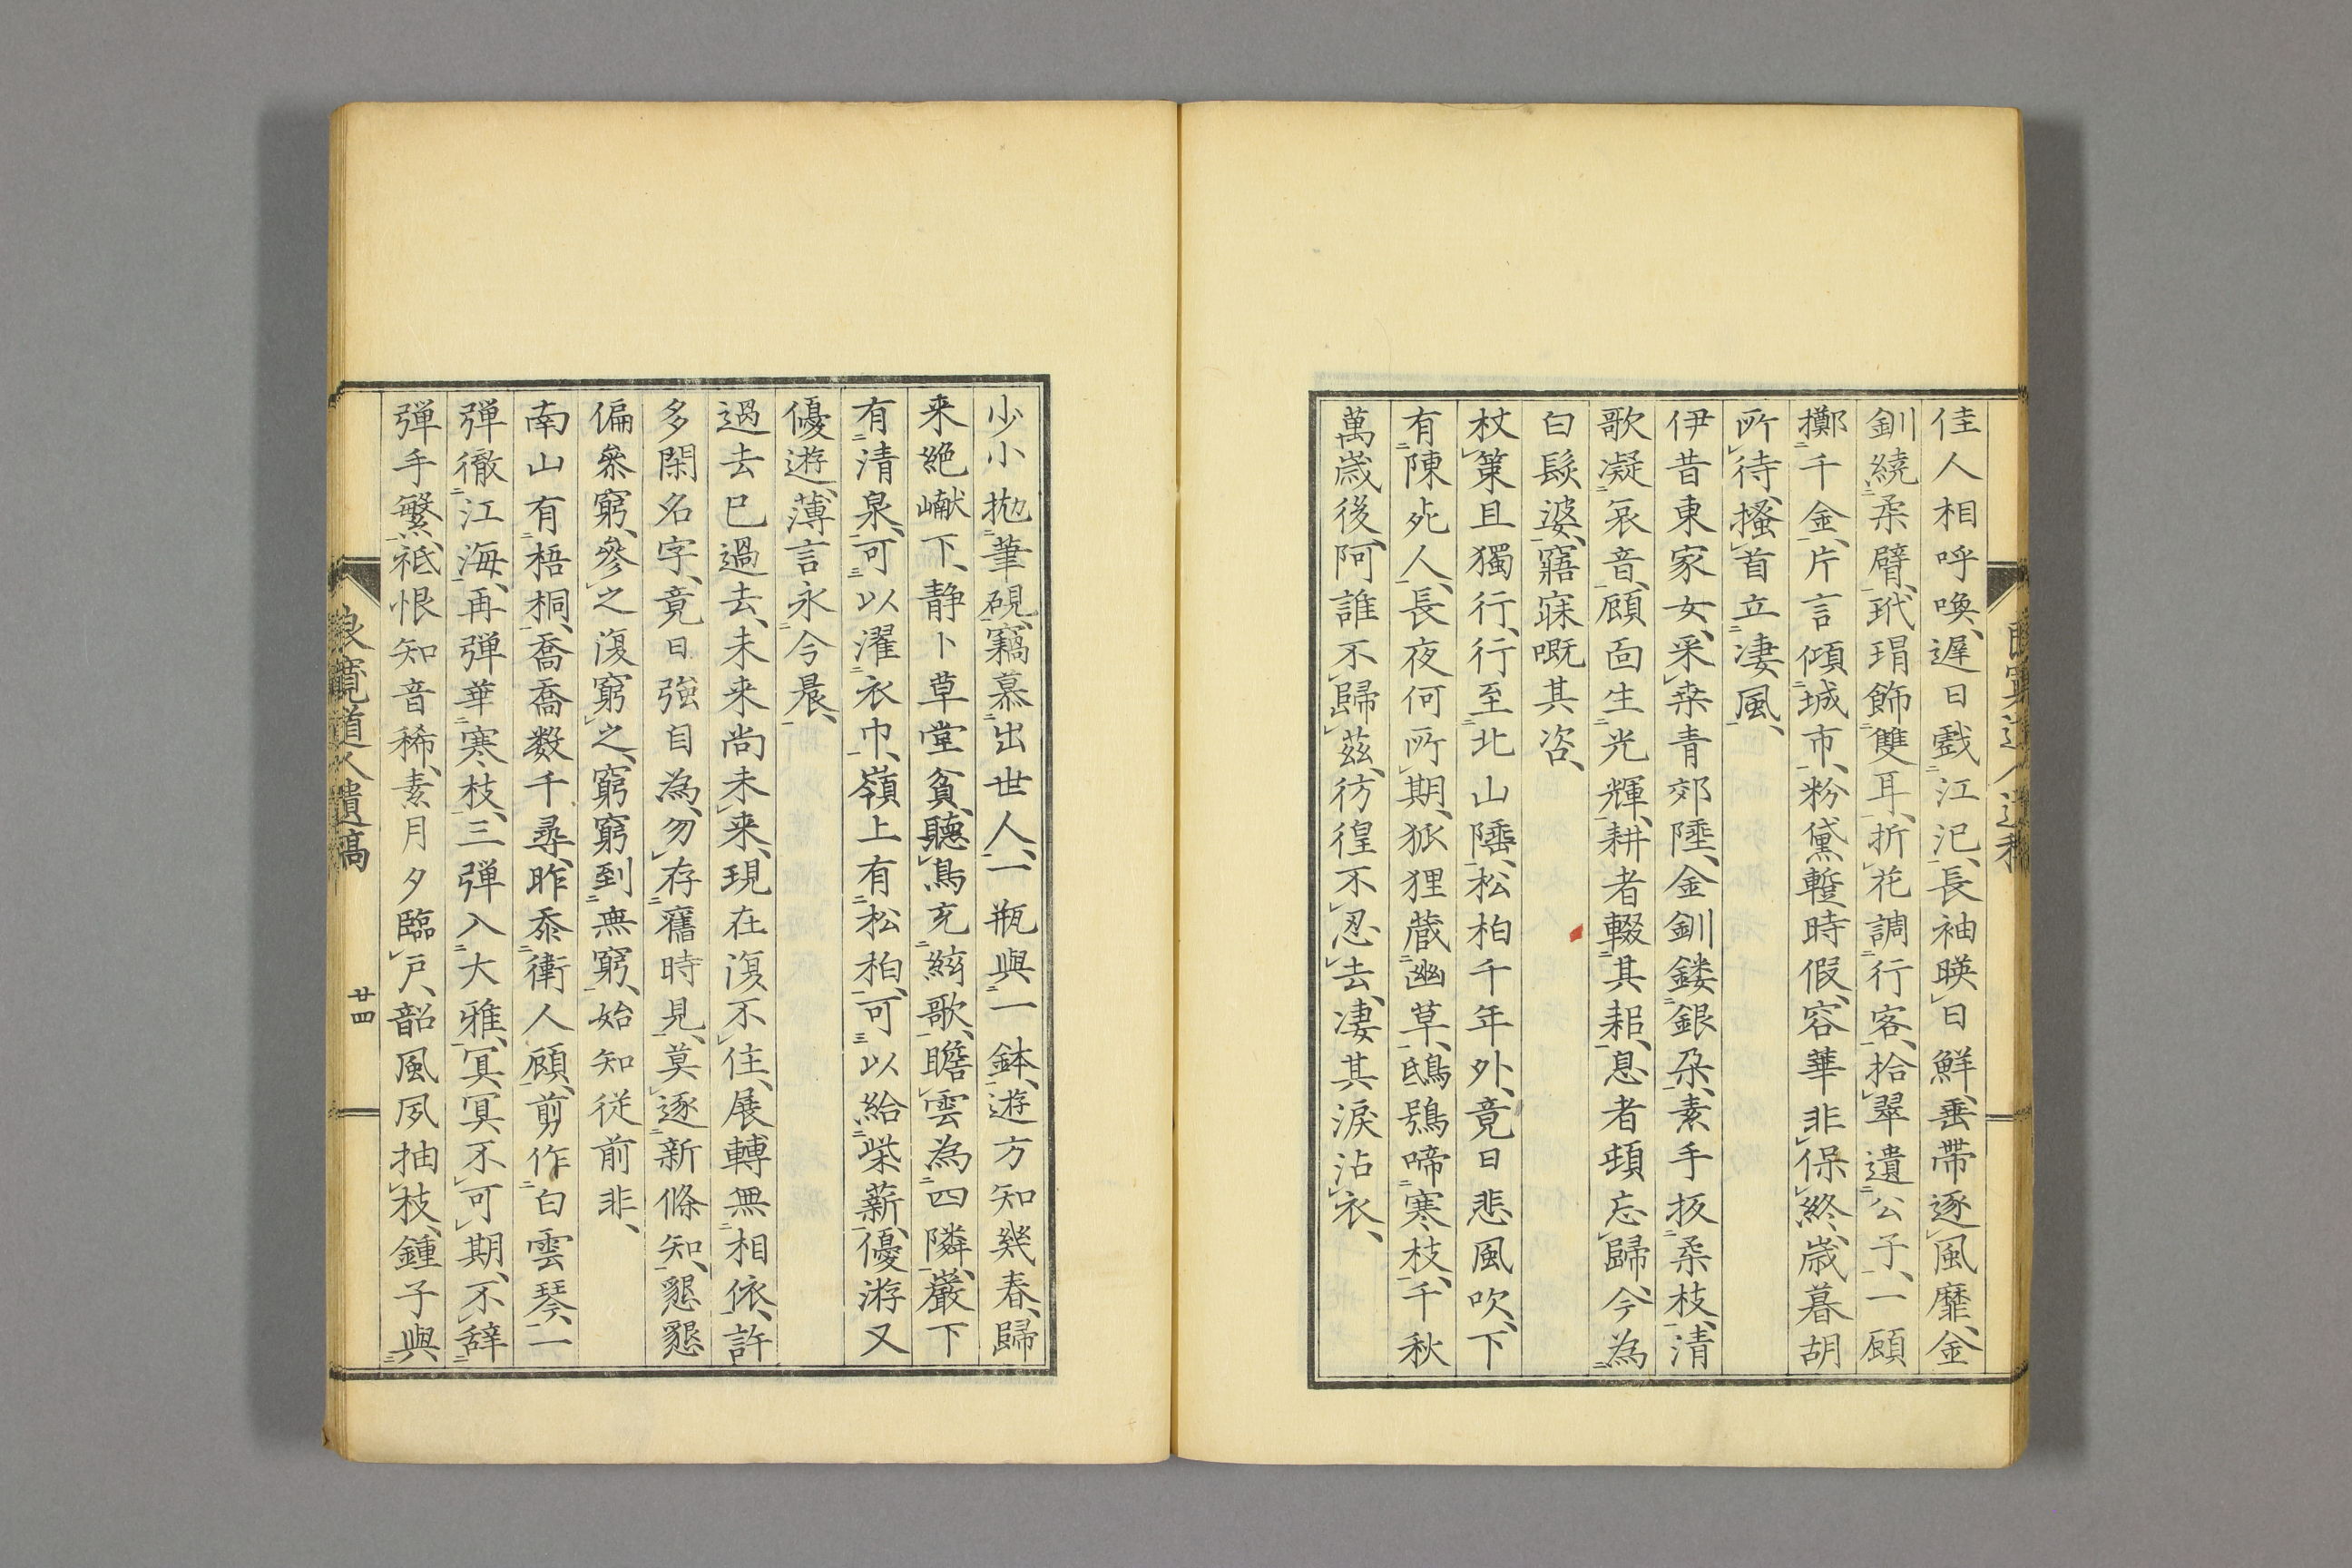 佳人相呼喚、遲日戲江汜、長袖暎日鮮、垂帶逐風靡、金
釧繞柔臂、玳瑁飾雙耳、折花調行客、拾翠遺公子、一顧
擲千金、片言傾城市、粉黛蹔時假、容華非保終、歳暮胡
所待、搔首立凄風、
伊昔東家女、采桒青郊陲、金釧鏤銀朶、素手扳柔枝、清
歌凝哀音、顧面生光輝、耕者輟其耜、息者頓忘歸、今為
白髮婆、寤寐嘅其咨、
杖策且獨行、行至北山陲、松柏千年外、竟日悲風吹、下
有陳死人、長夜何所期、狐狸蔵幽草、鴟鴞啼寒枝、千秋
萬歳後、阿誰不歸茲、彷徨不忍去、凄其淚沾衣、
少小抛筆硯、竊慕出世人、一瓶與一鉢、遊方知幾春、歸
来絶巘下、静卜草堂貧、聽鳥充絃歌、瞻雲為四隣、巖下
有清泉、可以濯衣巾、嶺上有松柏、可以給柴薪、優游又
優遊、薄言永今晨、
過去已過去、未来尚未来、現在復不住、展轉無相依、許
多閑名字、竟日強自為、勿存舊時見、莫逐新條知、懇懇
偏叅窮、參之復窮之、窮窮到無窮、始知従前非、
南山有梧桐、喬喬数千尋、昨忝衛人顧、剪作白雲琴、一
弾徹江海、再弾華寒枝、三弾入大雅、冥冥不可期、不辞
弾手繁、祗恨知音稀、素月夕臨戸、韶風夙抽枝、鍾子與
良寛道人遺稿
廿四